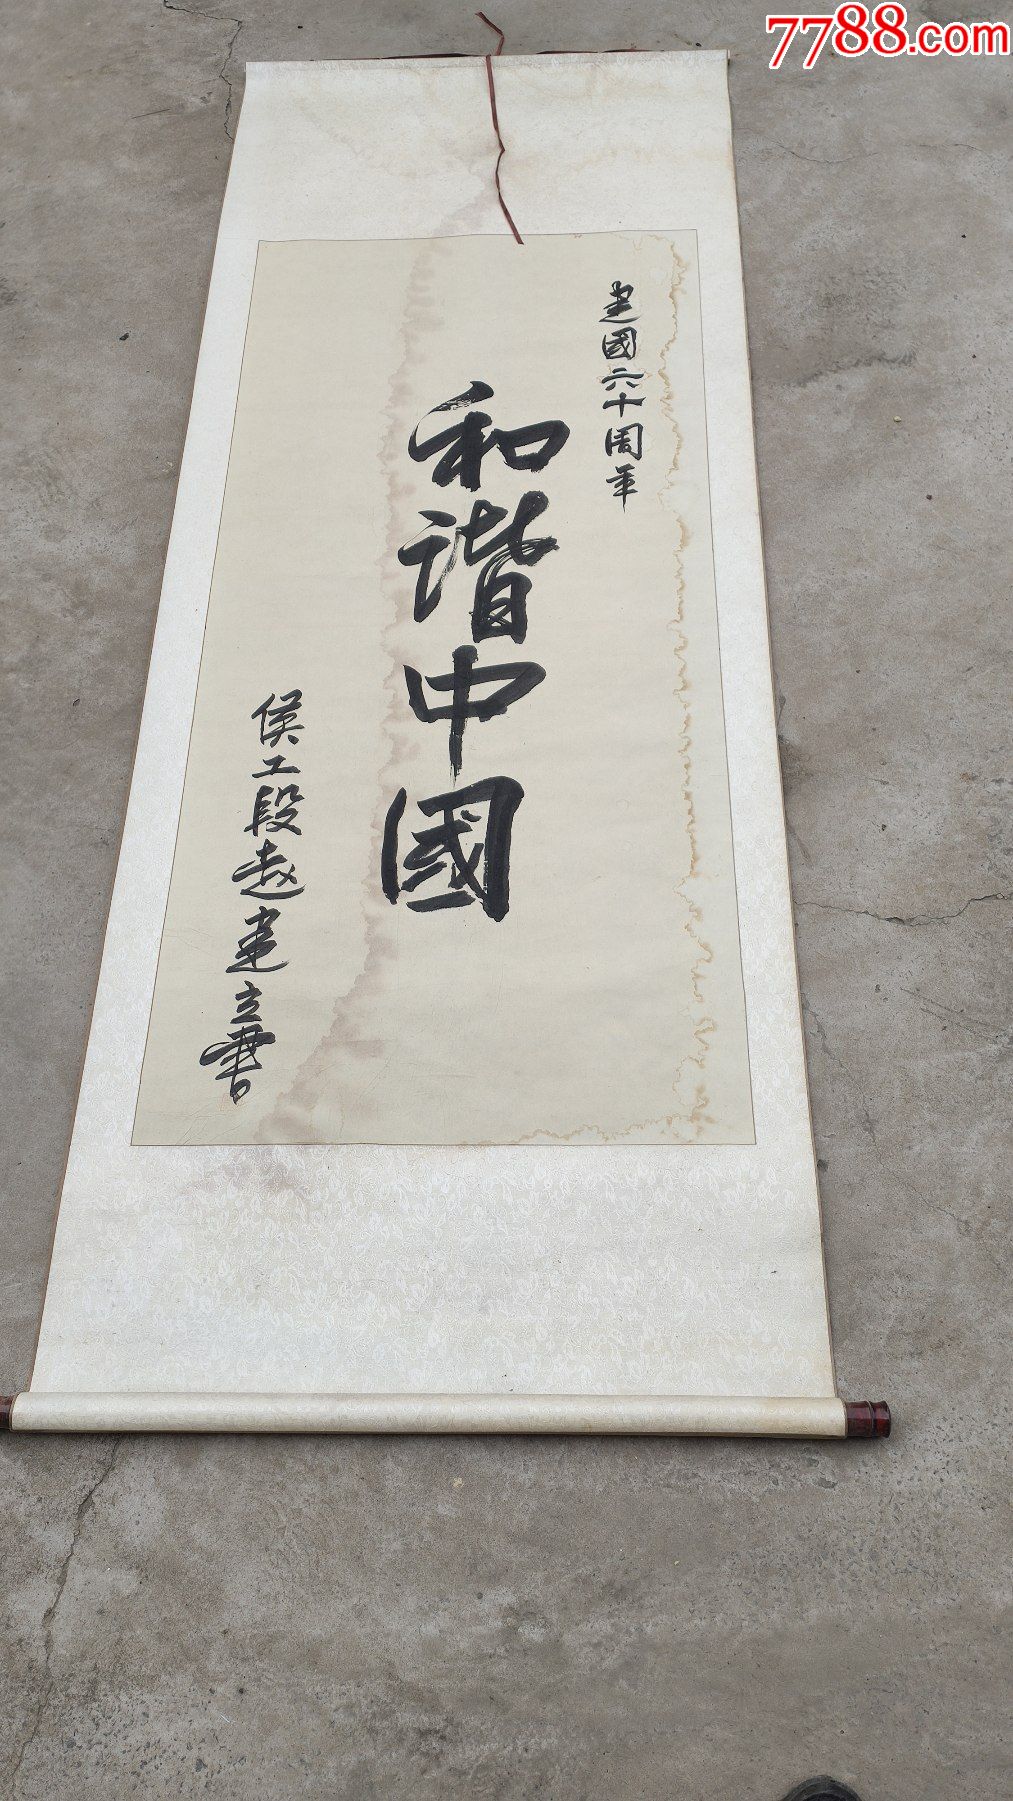 7788.com
建國六十周年
和谐中國
侯工段赵建立書